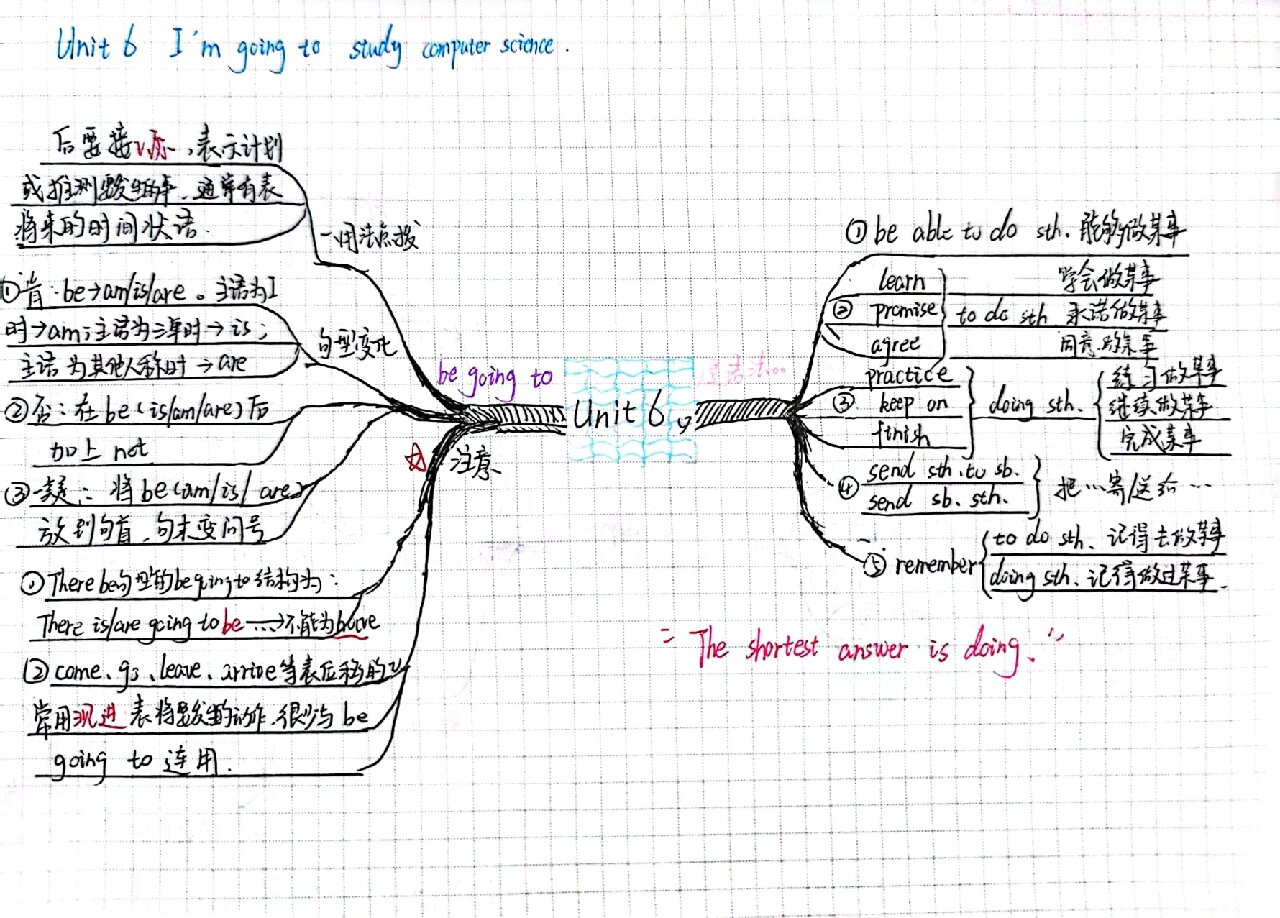 Unit 6 I'm going to study computer science.
后要接v原,表示计划
或推测要发生的事,通常有表
将来的时间状语.
用法点拨
①肯:be→am/is/are。主语为I
时→am;主语为三单时→is;
主语为其他人称时→are
句型变化
②否:在be(is/am/are)后
加上 not
③一疑:将be(am/is/are)
放到句首,句末变问号
be going to
注意
①There be句型的be going to结构为:
There is/are going to be …→不能为have
②come、go、leave、arrive等表位移的v.
常用现进表将要发生的动作,很少与be
going to 连用.
Unit 6
①be able to do sth. 能够做某事
②
learn
promise
agree
to do sth
学会做某事
承诺做某事
同意做某事
③
practice
keep on
finish
doing sth.
练习做某事
继续做某事
完成某事
④
send sth. to sb.
send sb. sth.
把…寄/送给…
⑤ remember
to do sth、记得去做某事
doing sth、记得做过某事.
"The shortest answer is doing."